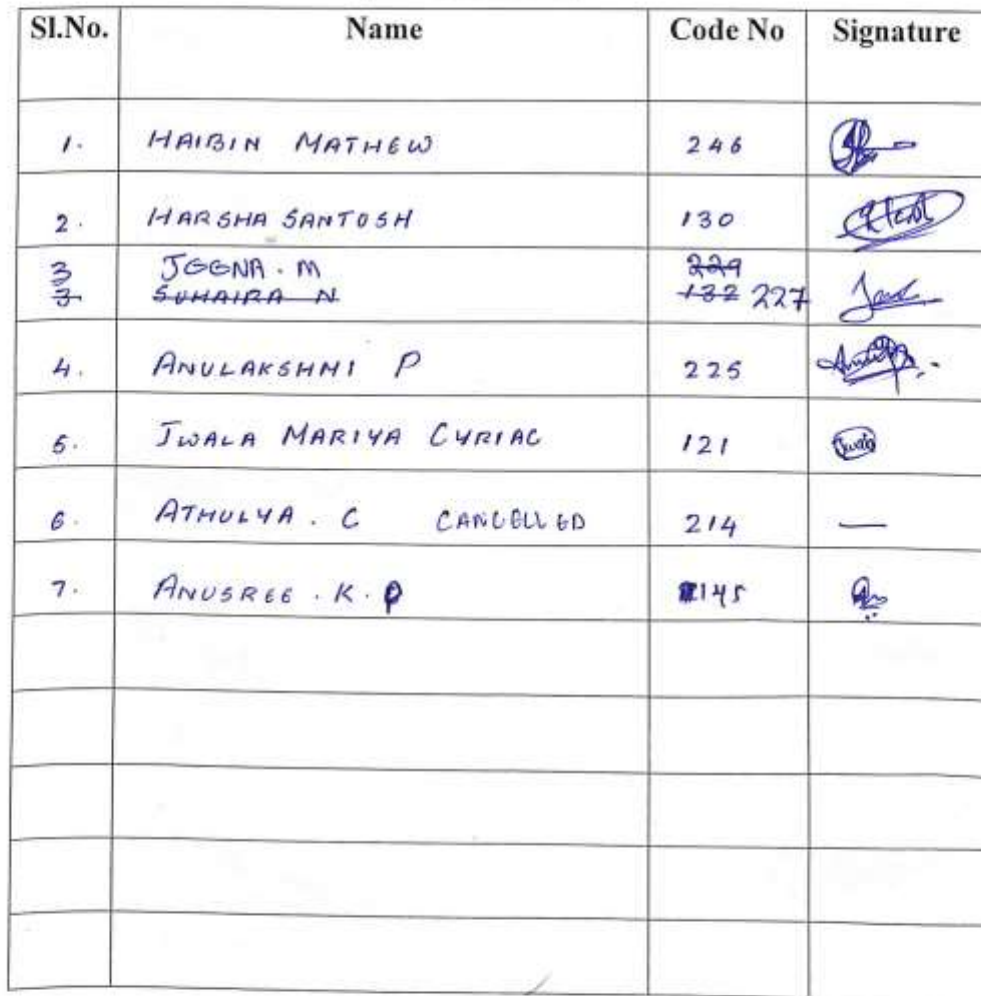 Sl.No. Name Code No Signature
1. HAIBIN MATHEW 246
2. HARSHA SANTOSH 130
3 JEENA . M 229
3 SUHAIRA N 132 227
4. ANULAKSHMI P 225
5. JWALA MARIYA CYRIAC 121 Jwala
6. ATHULYA . C CANCELLED 214 —
7. ANUSREE . K . P 145